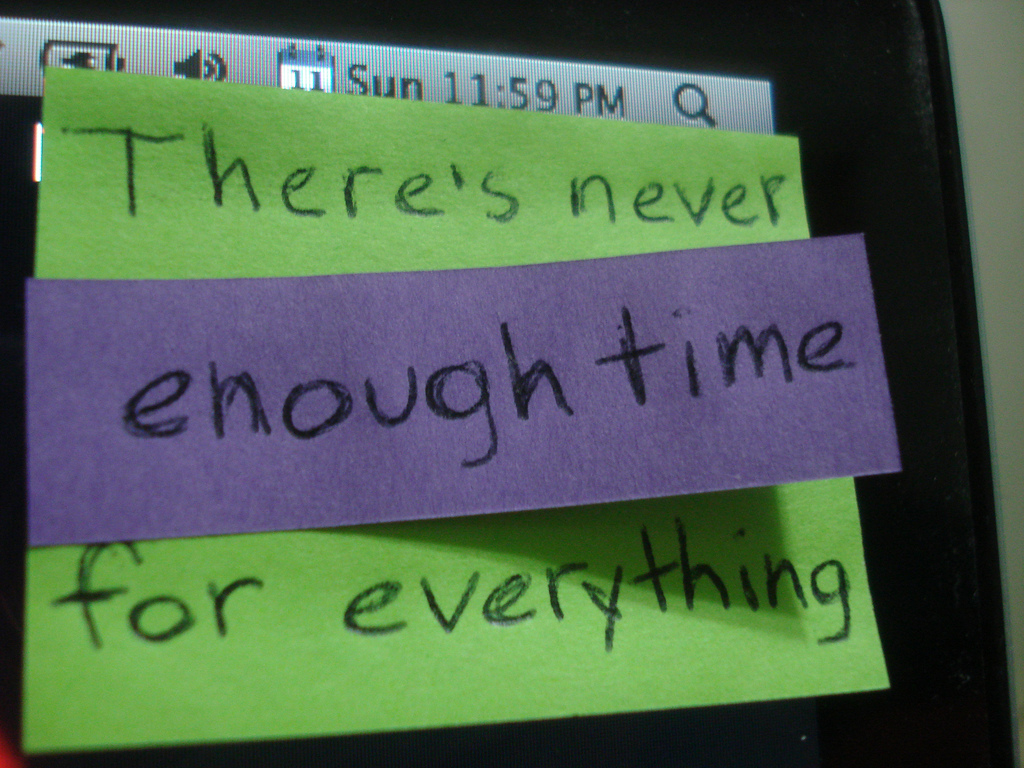 11 Sun 11:59 PM
There's never
enough time
for everything